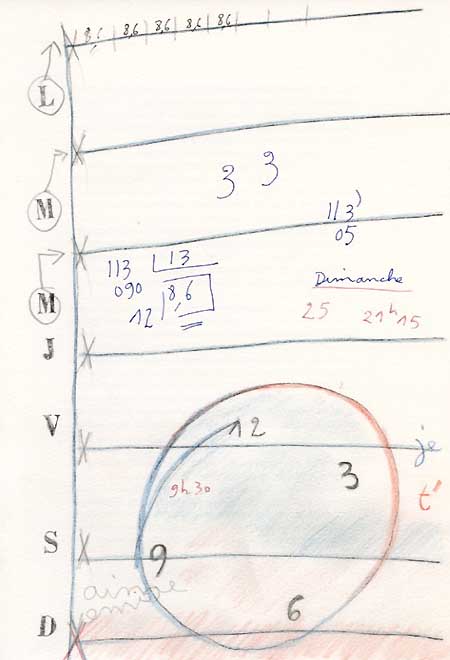 8,6 8,6 8,6 8,6 8,6
L
3 3
M
113
05
113 13
090 8,6
12
M
Dimanche
25 21h15
J
V
12
je
3
9h30
t'
S
9
aime
6
D